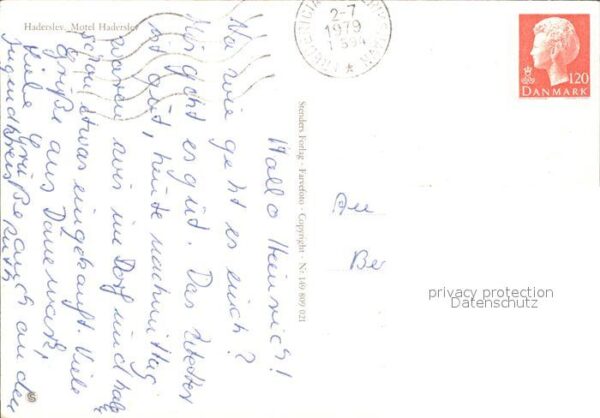 Haderslev. Motel Haderslev
Hallo Heinrich!
Na wie geht es euch?
Mir geht es gut. Das Wetter
ist gut, heute nachmittag
waren wir im Dorf und hab
schon etwas eingekauft. Viele
Grüße aus Dänemark,
Viele Grüße auch an den
Jugendkreis Ruth
Stenders Forlag · Farvefoto · Copyright · Nr 149 809 021
2-7
1979
120
DANMARK
An
Be
privacy protection
Datenschutz